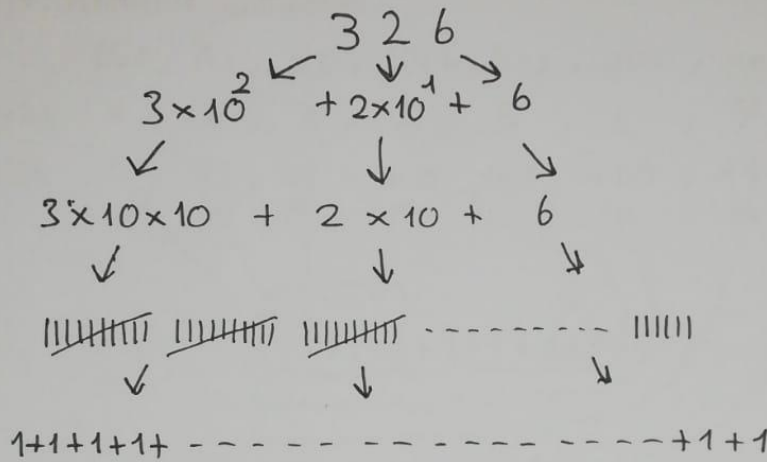 3 2 6
3×10² + 2×10¹ + 6
3×10×10 + 2 × 10 + 6
1+1+1+1+ - - - - - - - - - - - - - - +1+1